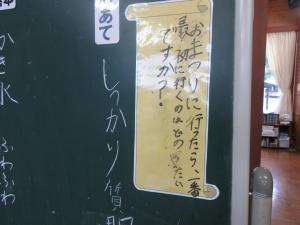 めあて
しっかり質
おまつりに行ったら、一番
最初に行くのはどの
ですか？
かき氷
ふわふわ